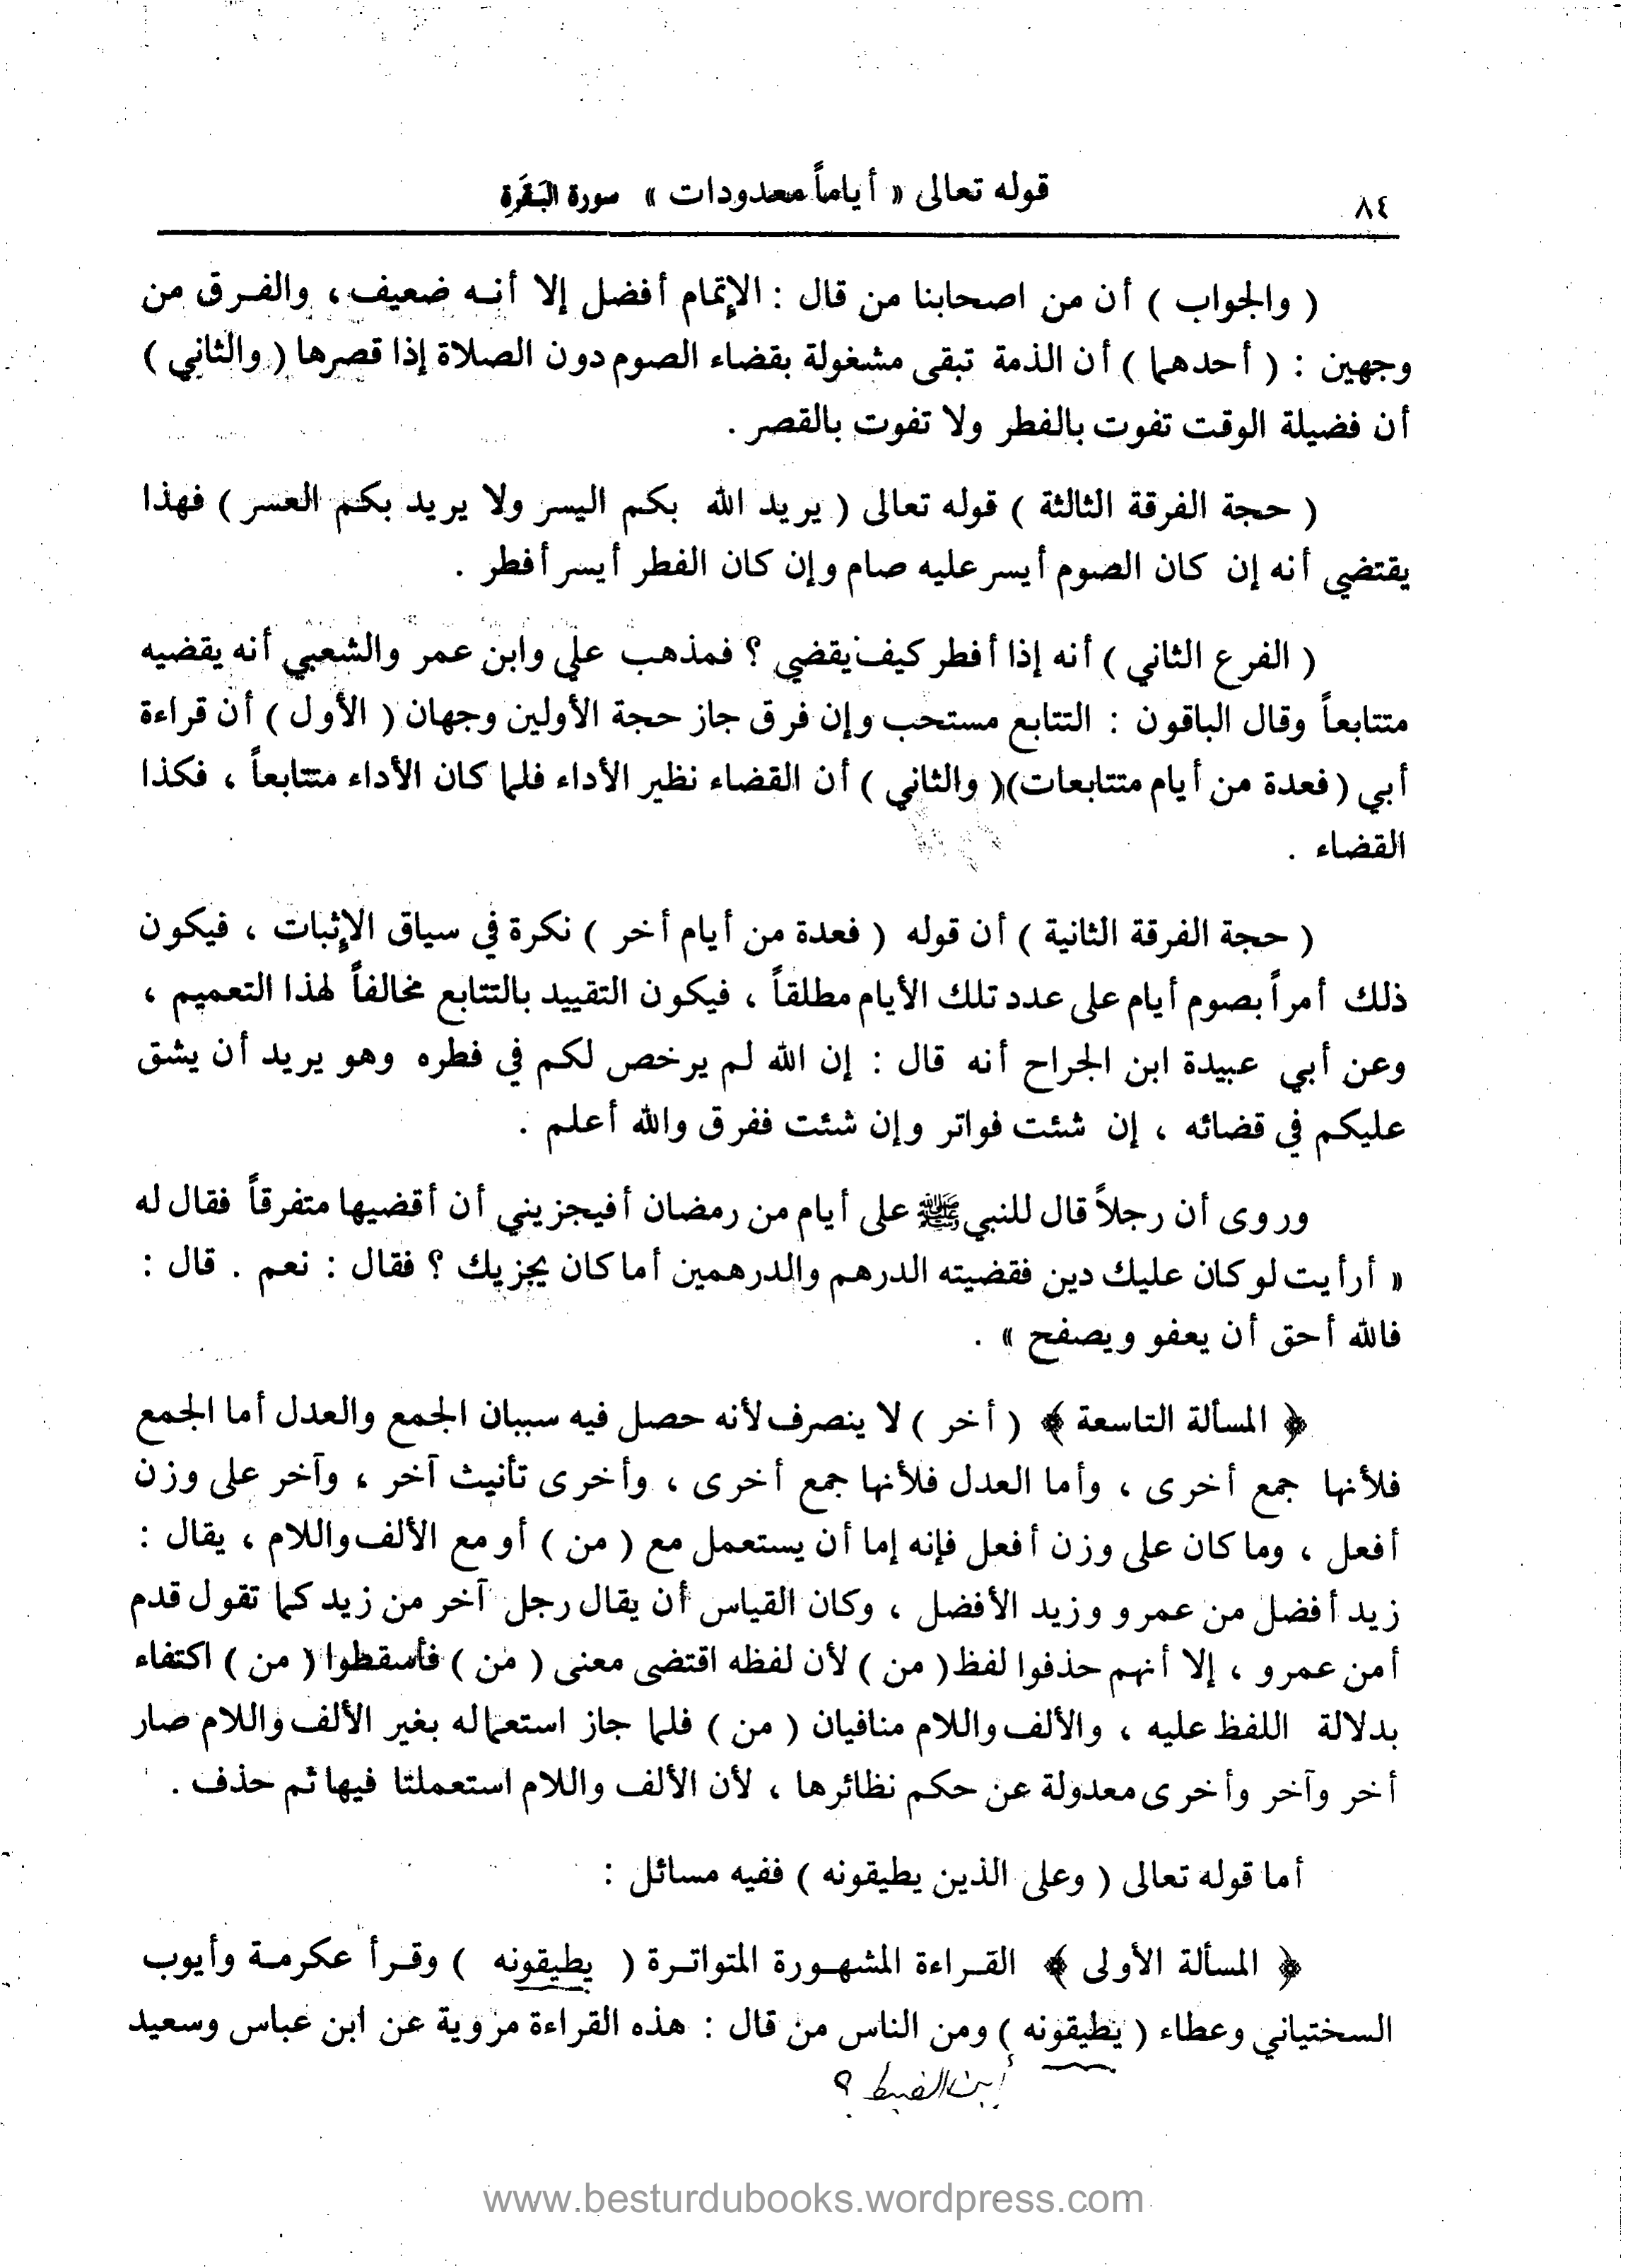 ٨٤
قوله تعالى « أياماً معدودات » سورة البَقَرَة
( والجواب ) أن من اصحابنا من قال : الإتمام أفضل إلا أنه ضعيف ، والفرق من
وجهين : ( أحدهما ) أن الذمة تبقى مشغولة بقضاء الصوم دون الصلاة إذا قصرها ( والثاني )
أن فضيلة الوقت تفوت بالفطر ولا تفوت بالقصر .
( حجة الفرقة الثالثة ) قوله تعالى ( يريد الله بكم اليسر ولا يريد بكم العسر ) فهذا
يقتضي أنه إن كان الصوم أيسر عليه صام وإن كان الفطر أيسر أفطر .
( الفرع الثاني ) أنه إذا أفطر كيف يقضي ؟ فمذهب علي وابن عمر والشعبي أنه يقضيه
متتابعاً وقال الباقون : التتابع مستحب وإن فرق جاز حجة الأولين وجهان ( الأول ) أن قراءة
أبي ( فعدة من أيام متتابعات)( والثاني ) أن القضاء نظير الأداء فلما كان الأداء متتابعاً ، فكذا
القضاء .
( حجة الفرقة الثانية ) أن قوله ( فعدة من أيام أخر ) نكرة في سياق الإثبات ، فيكون
ذلك أمراً بصوم أيام على عدد تلك الأيام مطلقاً ، فيكون التقييد بالتتابع مخالفاً لهذا التعميم ،
وعن أبي عبيدة ابن الجراح أنه قال : إن الله لم يرخص لكم في فطره وهو يريد أن يشق
عليكم في قضائه ، إن شئت فواتر وإن شئت ففرق والله أعلم .
وروى أن رجلاً قال للنبي ﷺ على أيام من رمضان أفيجزيني أن أقضيها متفرقاً فقال له
« أرأيت لو كان عليك دين فقضيته الدرهم والدرهمين أما كان يجزيك ؟ فقال : نعم . قال :
فالله أحق أن يعفو ويصفح » .
﴿ المسألة التاسعة ﴾ ( أخر ) لا ينصرف لأنه حصل فيه سببان الجمع والعدل أما الجمع
فلأنها جمع أخرى ، وأما العدل فلأنها جمع أخرى ، وأخرى تأنيث آخر ، وآخر على وزن
أفعل ، وما كان على وزن أفعل فإنه إما أن يستعمل مع ( من ) أو مع الألف واللام ، يقال :
زيد أفضل من عمرو وزيد الأفضل ، وكان القياس أن يقال رجل آخر من زيد كما تقول قدم
أمن عمرو ، إلا أنهم حذفوا لفظ ( من ) لأن لفظه اقتضى معنى ( من ) فأسقطوا ( من ) اكتفاء
بدلالة اللفظ عليه ، والألف واللام منافيان ( من ) فلما جاز استعماله بغير الألف واللام صار
أخر وآخر وأخرى معدولة عن حكم نظائرها ، لأن الألف واللام استعملتا فيها ثم حذف .
أما قوله تعالى ( وعلى الذين يطيقونه ) ففيه مسائل :
﴿ المسألة الأولى ﴾ القراءة المشهورة المتواترة ( يطيقونه ) وقرأ عكرمة وأيوب
السختياني وعطاء ( يطيقونه ) ومن الناس من قال : هذه القراءة مروية عن ابن عباس وسعيد
أين الضبط ؟
www.besturdubooks.wordpress.com